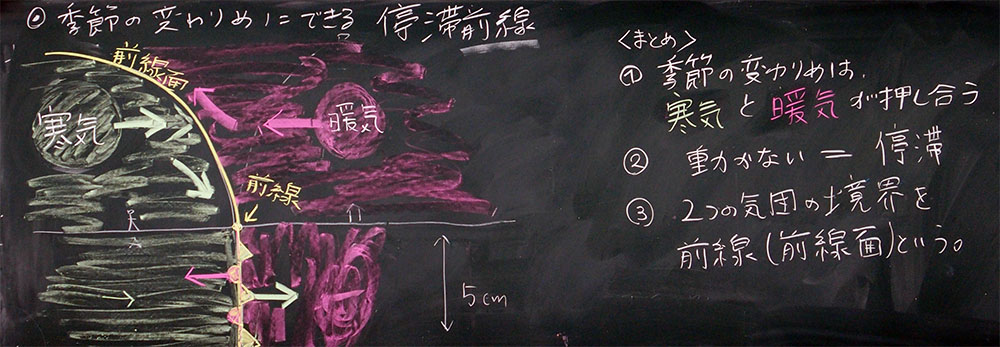 ◎ 季節の変わりめにできる 停滞前線
前線面
寒気
暖気
前線
5cm
<まとめ>
① 季節の変わりめは、
寒気と暖気が押し合う
② 動かない = 停滞
③ 2つの気団の境界を
前線(前線面)という。